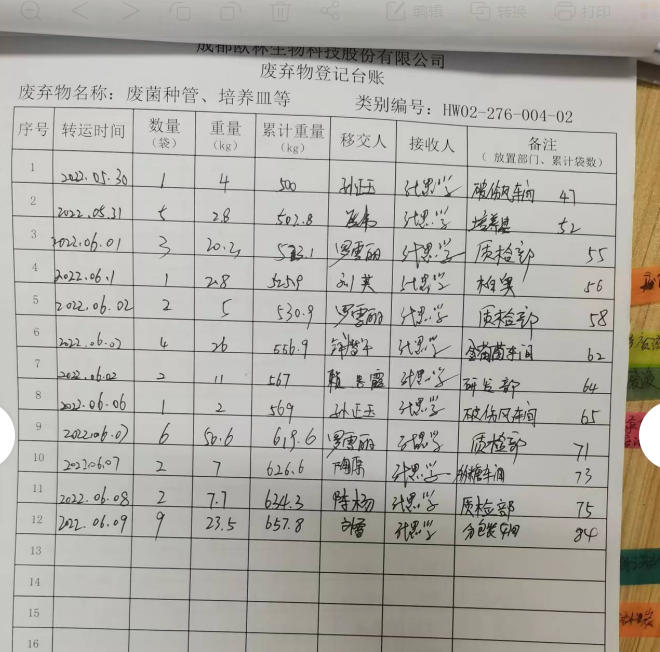 编辑 转换 打印
成都欧林生物科技股份有限公司
废弃物登记台账
废弃物名称：废菌种管、培养皿等 类别编号：HW02-276-004-02
序号 转运时间 数量（袋） 重量（kg） 累计重量（kg） 移交人 接收人 备注（放置部门、累计袋数）
1 2022.05.30 1 4 500 孙正玉 破伤风车间 47
2 2022.05.31 5 2.8 502.8 培养基 52
3 2022.06.01 3 20.2 罗雪丽 质检部 55
4 2022.06.1 1 2.8 525.9 刘英 56
5 2022.06.02 2 5 530.9 罗雪丽 质检部 58
6 4 26 556.9 金葡菌车间 62
7 2022.06.02 2 11 567 研发部 64
8 2022.06.06 1 2 569 孙正玉 破伤风车间 65
9 2022.06.07 6 50.6 619.6 罗雪丽 质检部 71
10 2022.06.07 2 7 626.6 陶原 车间 73
11 2022.06.08 2 7.7 634.3 陈杨 质检部 75
12 2022.06.09 9 23.5 657.8 分包装车间 84
13
14
15
16